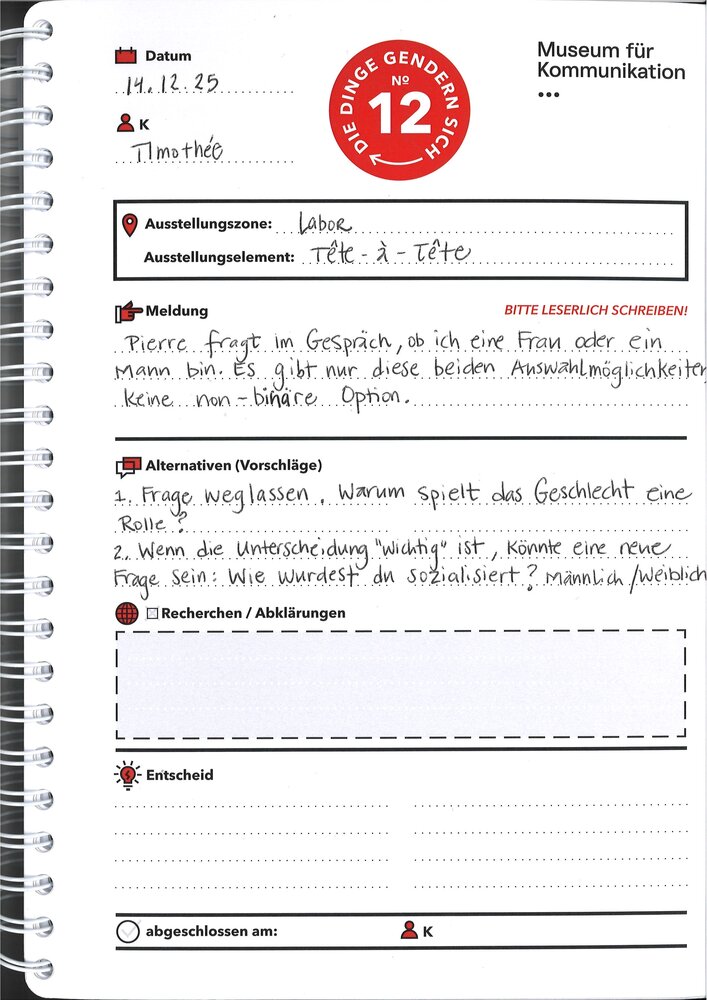 Museum für
Kommunikation
DIE DINGE GENDERN SICH
Nº
12
Datum
14.12.25
K
Timothée
Ausstellungszone: Labor
Ausstellungselement: Tête-à-Tête
Meldung
BITTE LESERLICH SCHREIBEN!
Pierre fragt im Gespräch, ob ich eine Frau oder ein
Mann bin. Es gibt nur diese beiden Auswahlmöglichkeiten
Keine non-binäre Option.
Alternativen (Vorschläge)
1. Frage weglassen. Warum spielt das Geschlecht eine
Rolle?
2. Wenn die Unterscheidung "wichtig" ist, könnte eine neue
Frage sein: Wie wurdest du sozialisiert? Männlich/Weiblich
Recherchen / Abklärungen
Entscheid
abgeschlossen am:
K